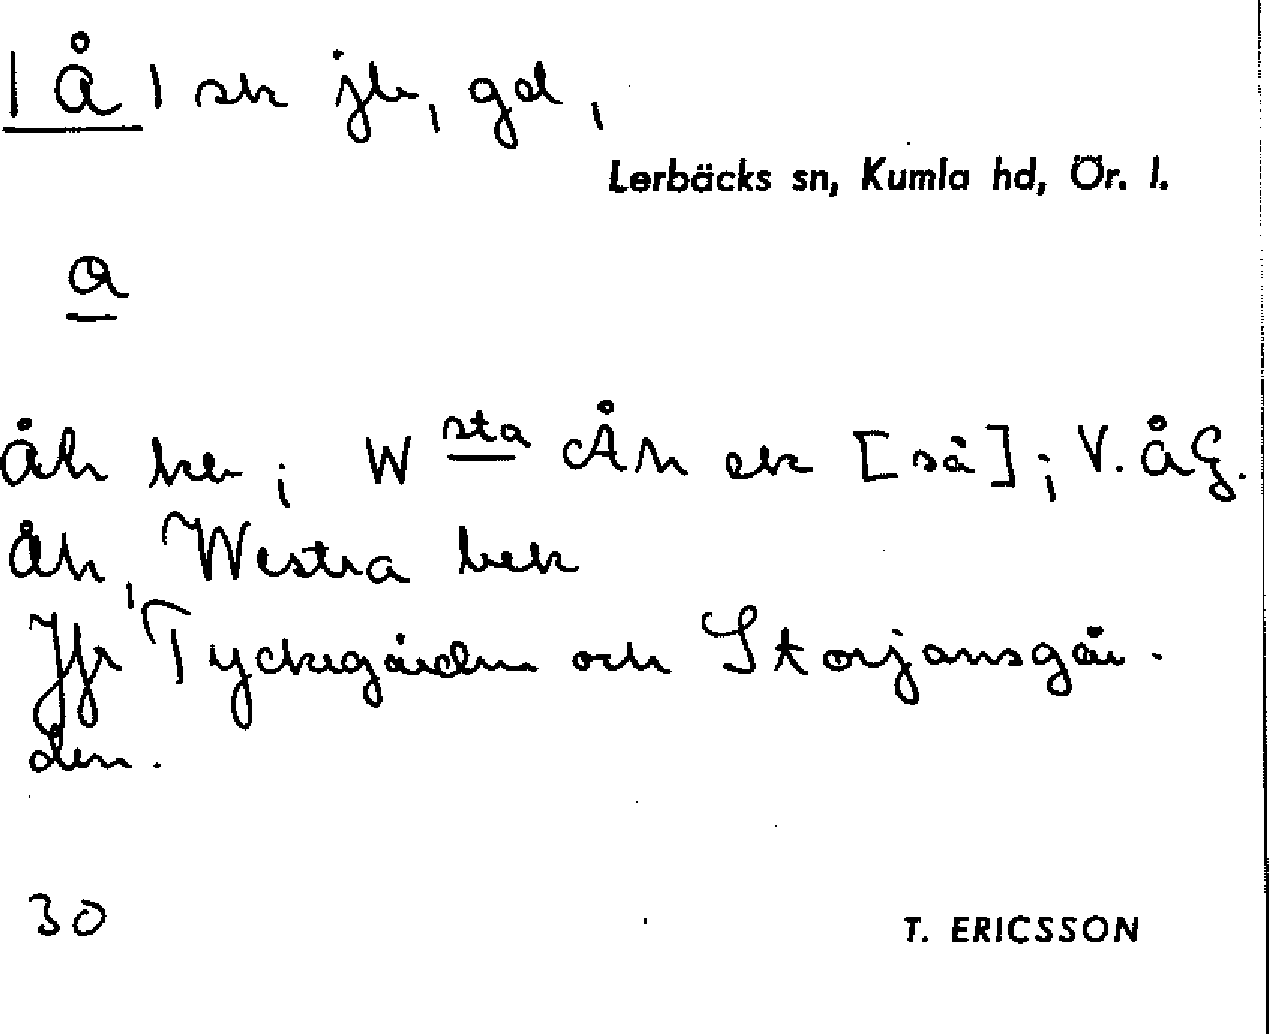 | Å | sk jb, gd,
Lerbäcks sn, Kumla hd, Ör. l.
a
Åh keb ; W sta Åh ek [så] ; V. Å G.
Åh, Westra bek
Jfr Tyckegården och Storjansgår-
den.
30
T. ERICSSON